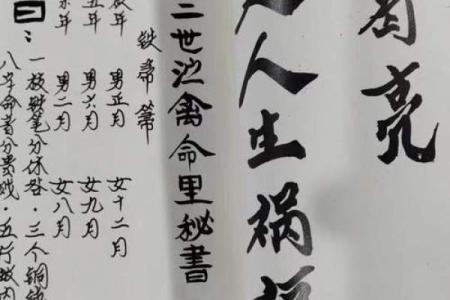 亮
人生祸
二世演禽命里秘書
鉄帚篇
年 男正月 女十二月
五年 男六月 女九月
年 男二月 女八月
曰:
一枝鉄笔分休咎·三个铜
八字命者分贵贱·五行